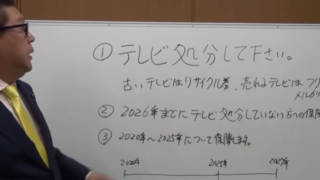 ① テレビ処分して下さい。
古いテレビはリサイクル券、売れるテレビはフリ
メルカ
② 2026年までにテレビ処分していない方への保障
③ 2020年〜2025年について保障します。
2020年 2025年 2027年